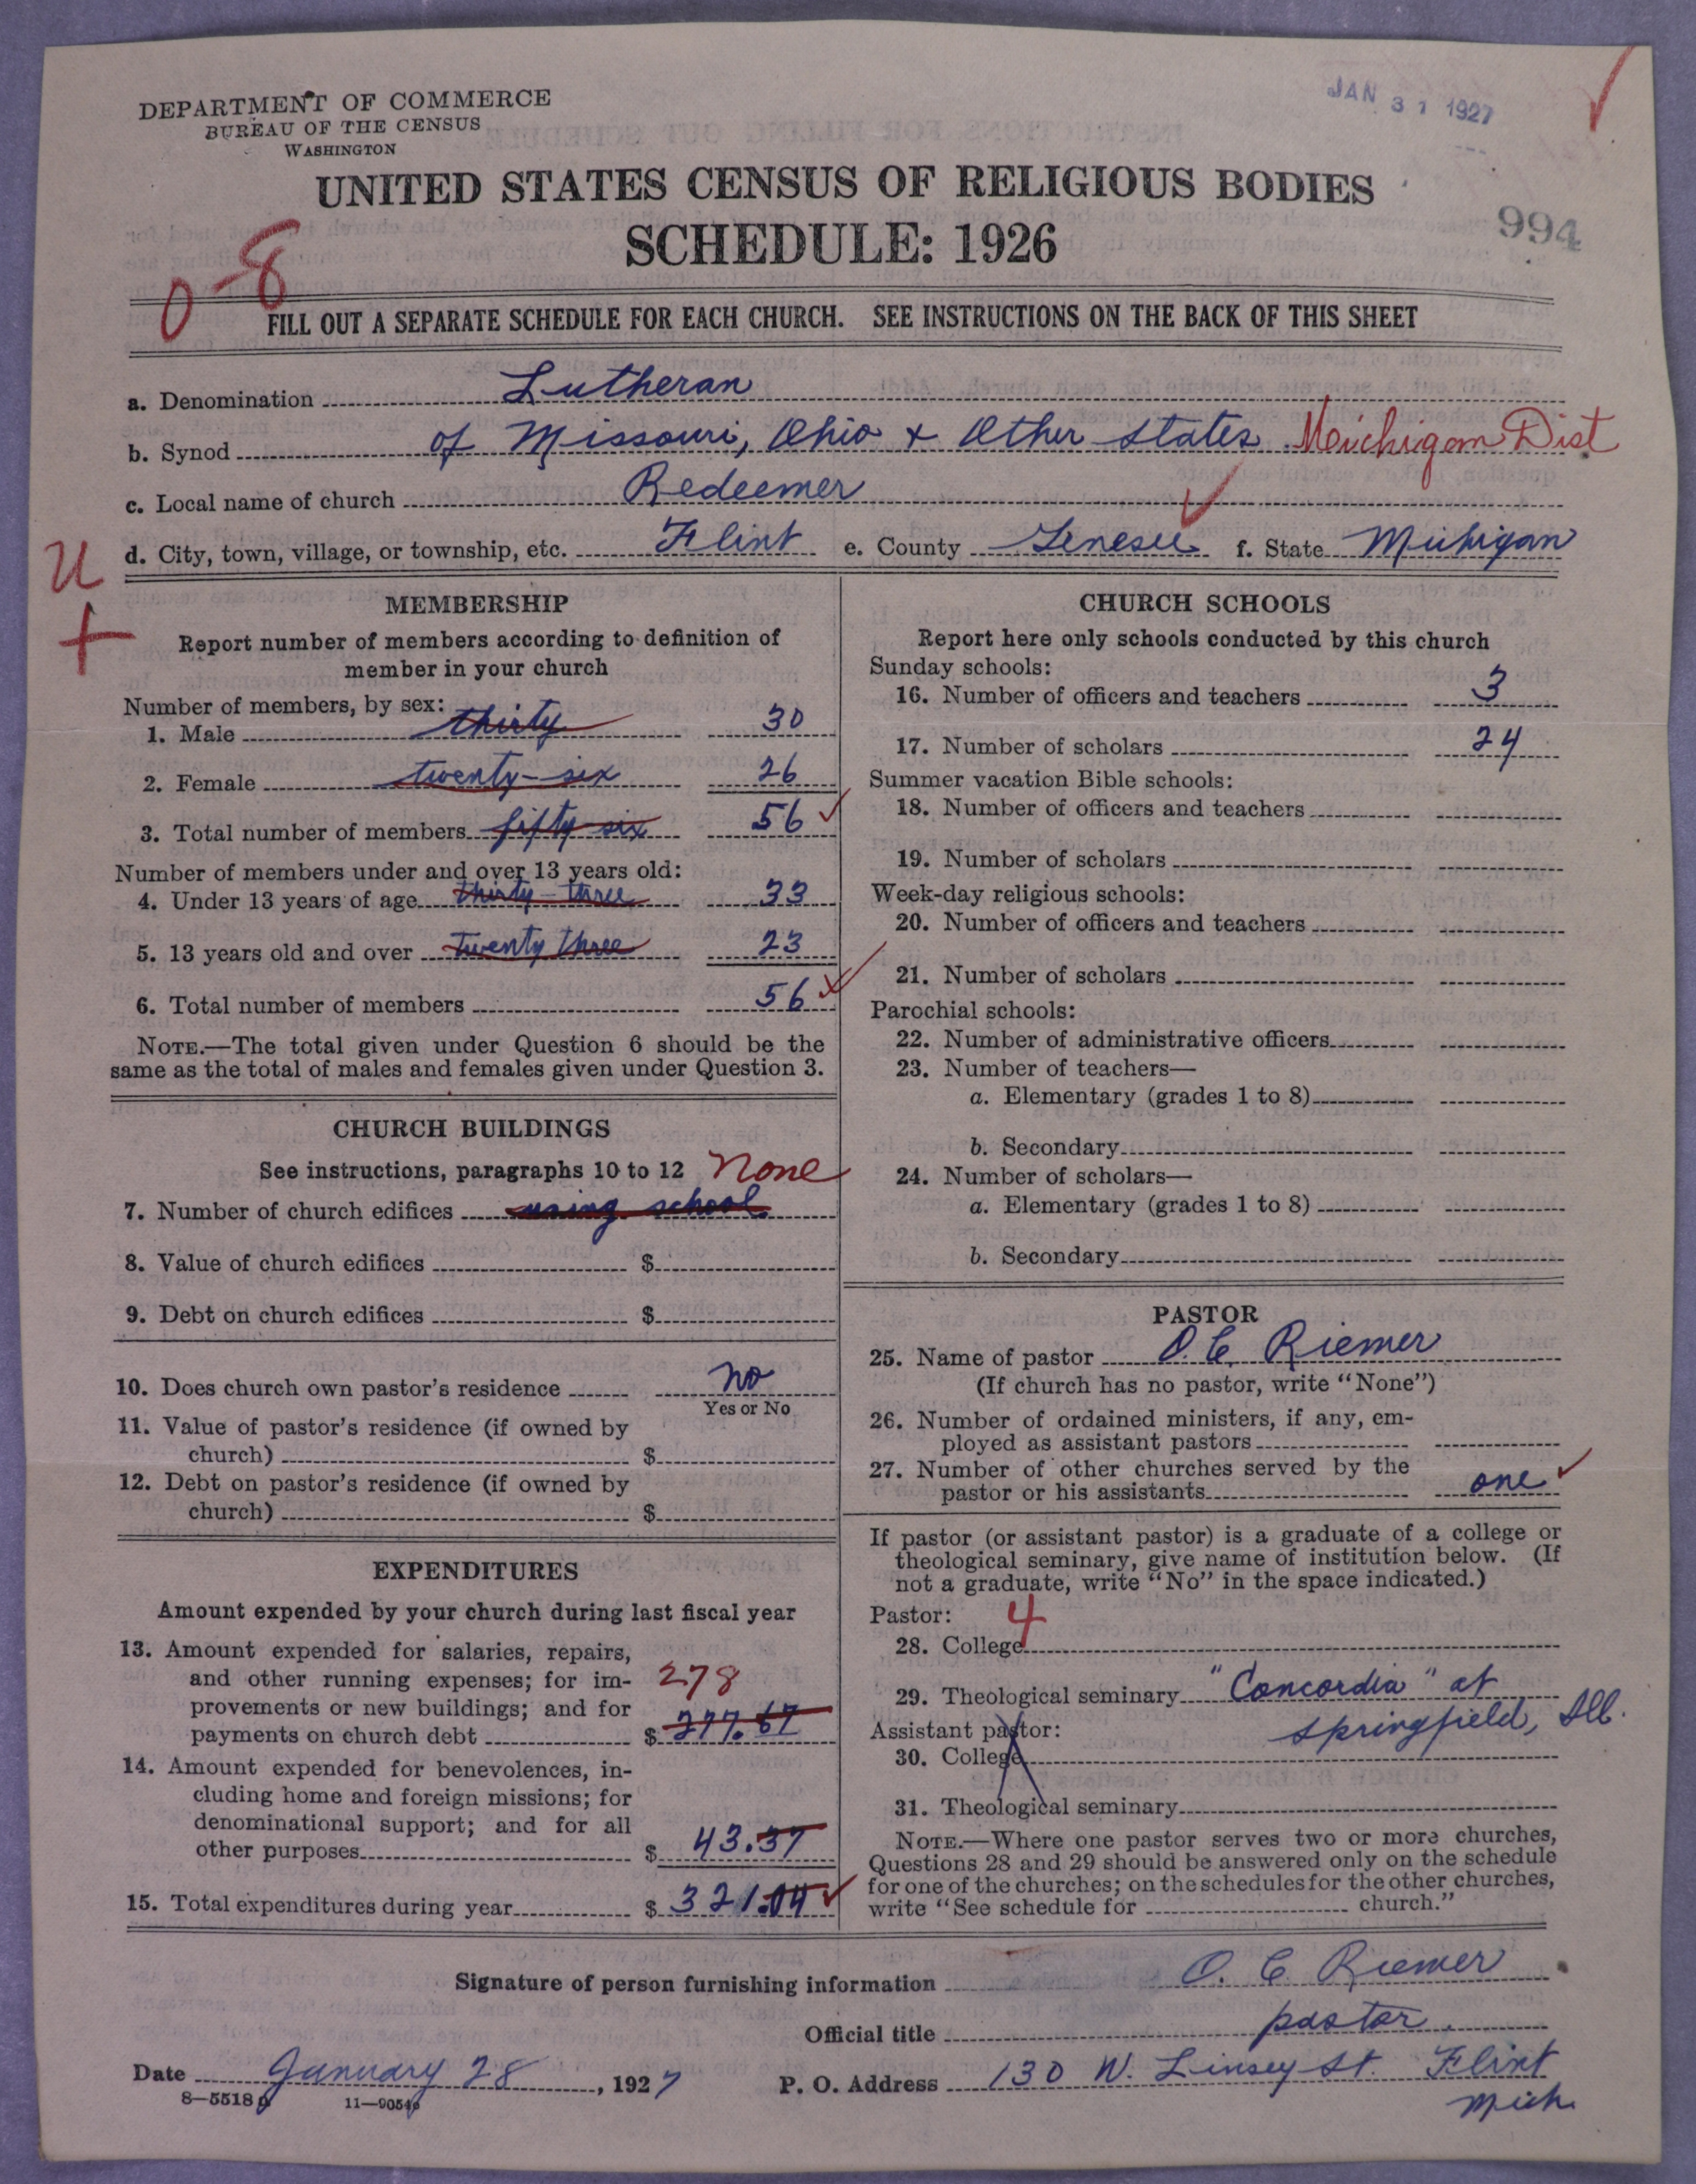 DEPARTMENT OF COMMERCE
BUREAU OF THE CENSUS
WASHINGTON
JAN 31 1927
UNITED STATES CENSUS OF RELIGIOUS BODIES
SCHEDULE: 1926
994
0-8
FILL OUT A SEPARATE SCHEDULE FOR EACH CHURCH. SEE INSTRUCTIONS ON THE BACK OF THIS SHEET
a. Denomination Lutheran
b. Synod of Missouri, Ohio + Other States Michigan Dist
c. Local name of church Redeemer
d. City, town, village, or township, etc. Flint e. County Genesee f. State Michigan
U
+
MEMBERSHIP
Report number of members according to definition of
member in your church
Number of members, by sex:
1. Male thirty 30
2. Female twenty-six 26
3. Total number of members fifty six 56
Number of members under and over 13 years old:
4. Under 13 years of age thirty-three 33
5. 13 years old and over twenty three 23
6. Total number of members 56
NOTE.—The total given under Question 6 should be the
same as the total of males and females given under Question 3.
CHURCH BUILDINGS
See instructions, paragraphs 10 to 12 None
7. Number of church edifices using school
8. Value of church edifices $
9. Debt on church edifices $
10. Does church own pastor's residence no
Yes or No
11. Value of pastor's residence (if owned by
church) $
12. Debt on pastor's residence (if owned by
church) $
EXPENDITURES
Amount expended by your church during last fiscal year
13. Amount expended for salaries, repairs,
and other running expenses; for im- 278
provements or new buildings; and for
payments on church debt $ 277.67
14. Amount expended for benevolences, in-
cluding home and foreign missions; for
denominational support; and for all
other purposes $ 43.37
15. Total expenditures during year $ 321.04
CHURCH SCHOOLS
Report here only schools conducted by this church
Sunday schools:
16. Number of officers and teachers 3
17. Number of scholars 24
Summer vacation Bible schools:
18. Number of officers and teachers
19. Number of scholars
Week-day religious schools:
20. Number of officers and teachers
21. Number of scholars
Parochial schools:
22. Number of administrative officers
23. Number of teachers—
a. Elementary (grades 1 to 8)
b. Secondary
24. Number of scholars—
a. Elementary (grades 1 to 8)
b. Secondary
PASTOR
25. Name of pastor O. C. Riemer
(If church has no pastor, write "None")
26. Number of ordained ministers, if any, em-
ployed as assistant pastors
27. Number of other churches served by the
pastor or his assistants one
If pastor (or assistant pastor) is a graduate of a college or
theological seminary, give name of institution below. (If
not a graduate, write "No" in the space indicated.)
Pastor: 4
28. College
29. Theological seminary "Concordia" at
Springfield, Ill.
Assistant pastor:
30. College
31. Theological seminary
NOTE.—Where one pastor serves two or more churches,
Questions 28 and 29 should be answered only on the schedule
for one of the churches; on the schedules for the other churches,
write "See schedule for church."
Signature of person furnishing information O. C. Riemer
Official title pastor.
Date January 28, 1927 P. O. Address 130 W. Linsey St. Flint
Mich.
8—5518
11—90546